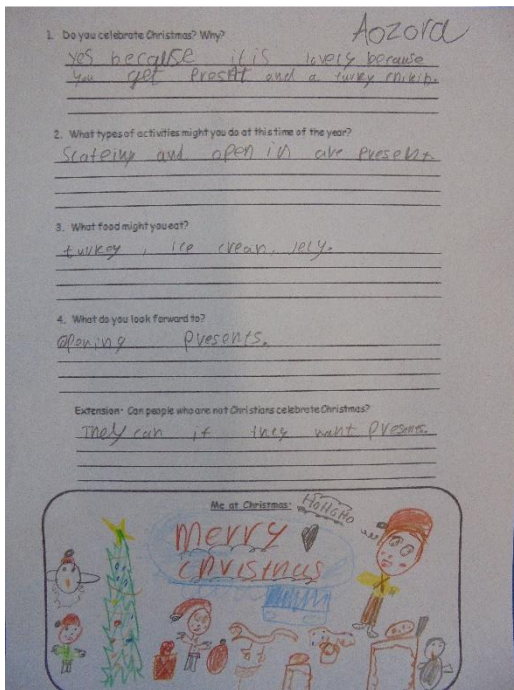 Aozora
1. Do you celebrate Christmas? Why?
yes because it is lovely because
you get and a turky
2. What types of activities might you do at this time of the year?
Scateing and open in are present.
3. What food might you eat?
turkey, ice crean, jely.
4. What do you look forward to?
opening presents.
Extension- Can people who are not Christians celebrate Christmas?
They can if they want presents.
Me at Christmas:
HoHoHo
merry
christmas